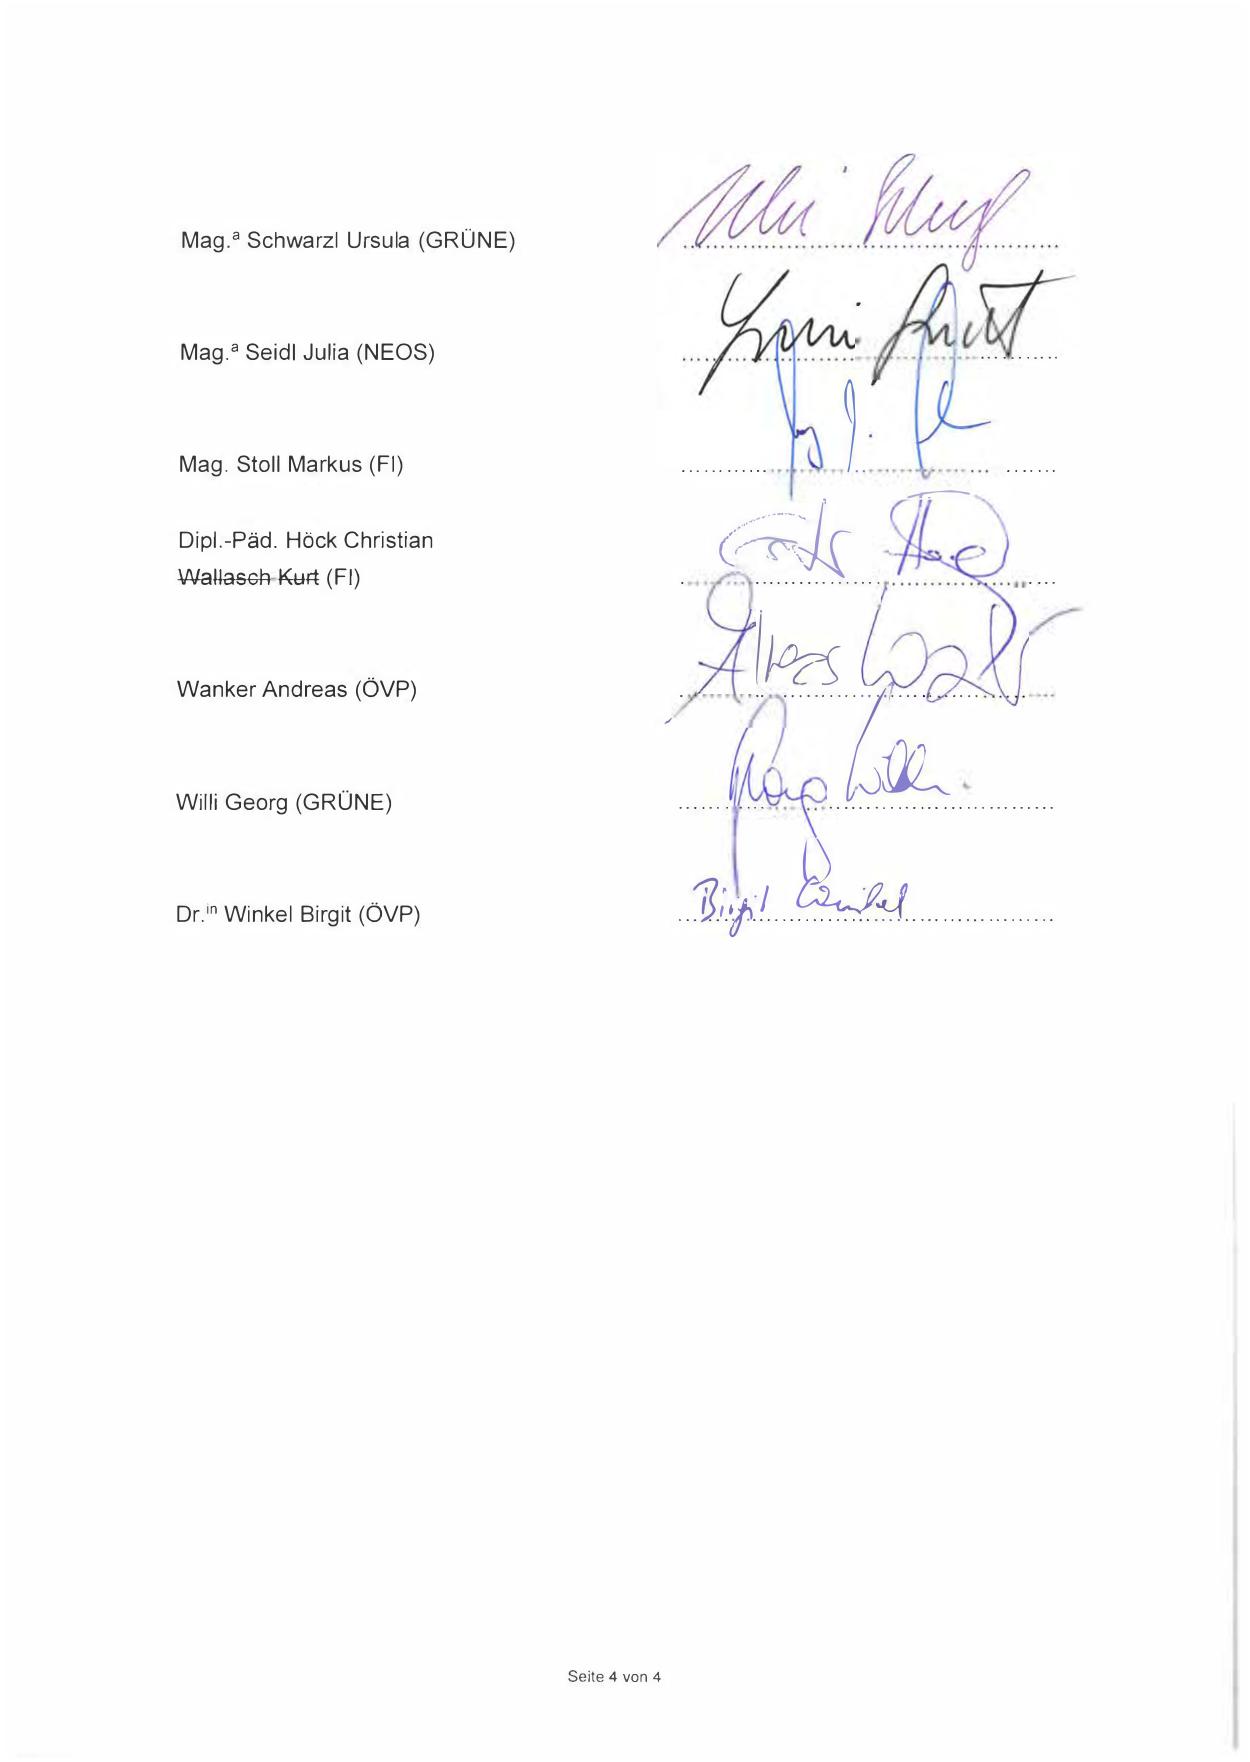 Mag.ª Schwarzl Ursula (GRÜNE)
Mag.ª Seidl Julia (NEOS)
Mag. Stoll Markus (FI)
Dipl.-Päd. Höck Christian
Wallasch Kurt (FI)
Wanker Andreas (ÖVP)
Willi Georg (GRÜNE)
Dr.ⁱⁿ Winkel Birgit (ÖVP)
Birgit Winkel
Seite 4 von 4